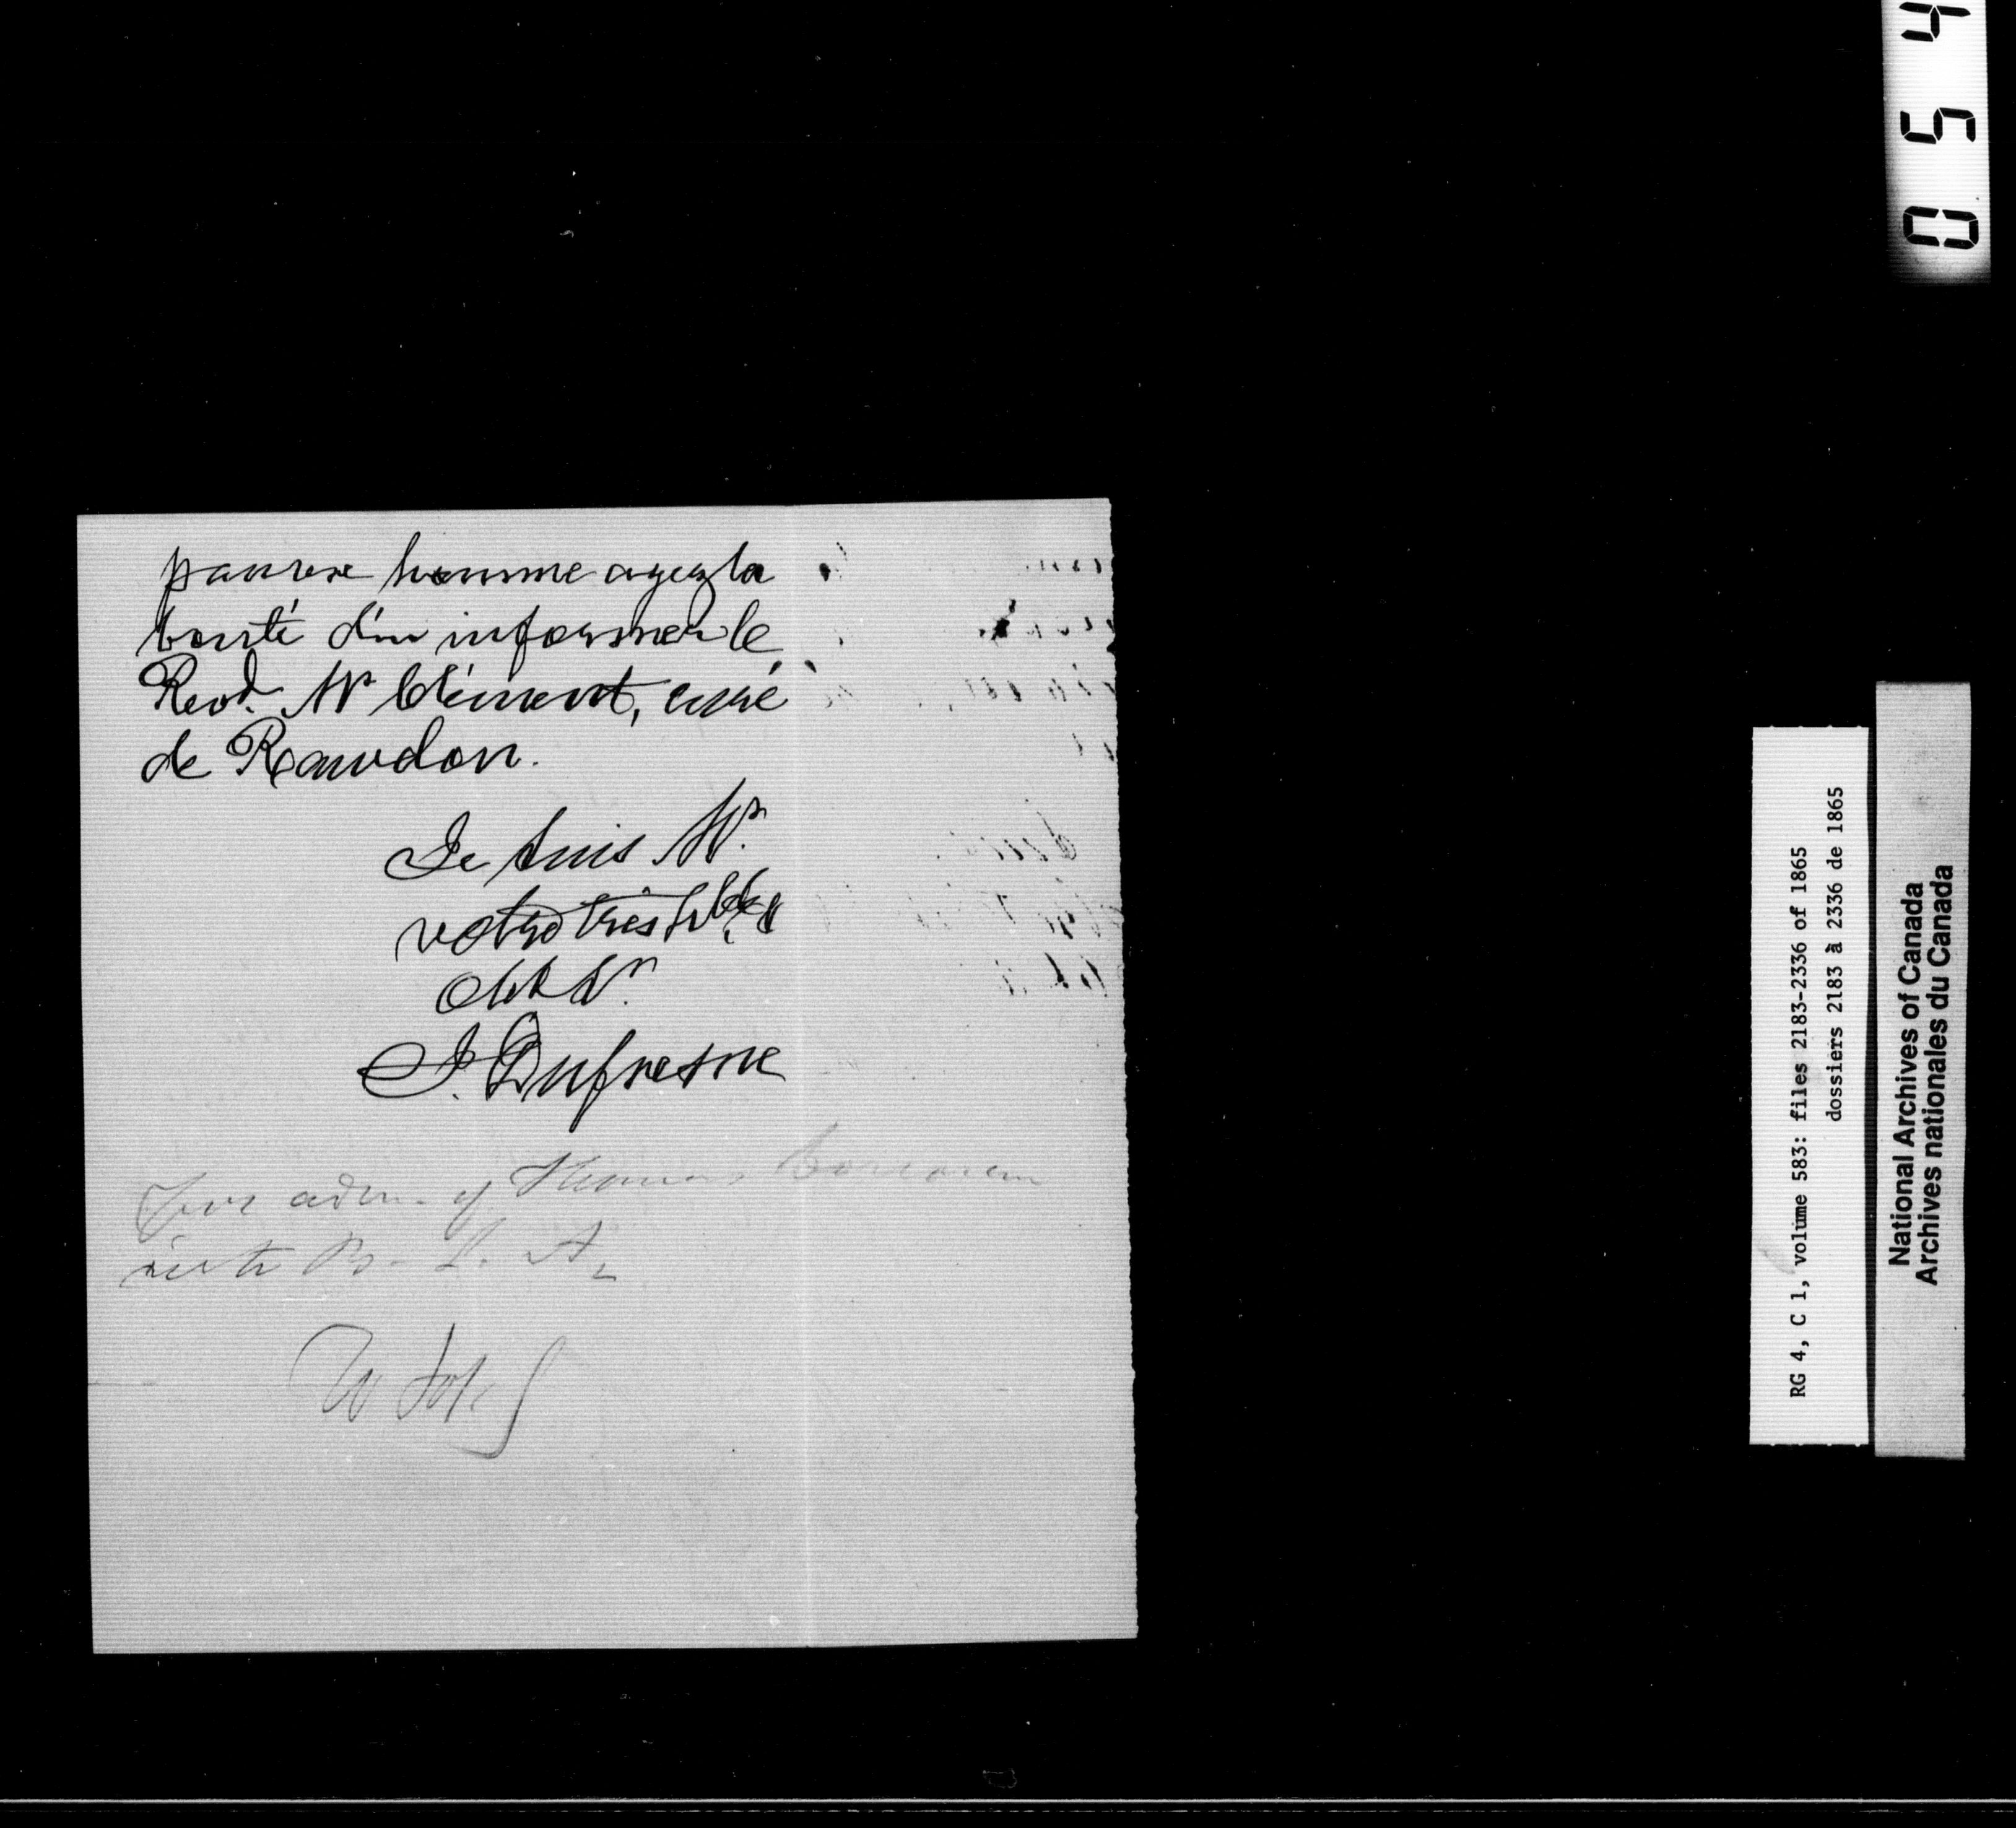 pauvre homme ayez la
bonté d'en informer le
Revd. Mr Clément, curé
de Rawdon.
Je suis Mr.
votre très hble &
Obt Sr.
J. Dufresne
for adm. of Thomas Corcoran
into B. L. A.
RG 4, C 1, volume 583: files 2183-2336 of 1865
dossiers 2183 à 2336 de 1865
National Archives of Canada
Archives nationales du Canada
0 5 4